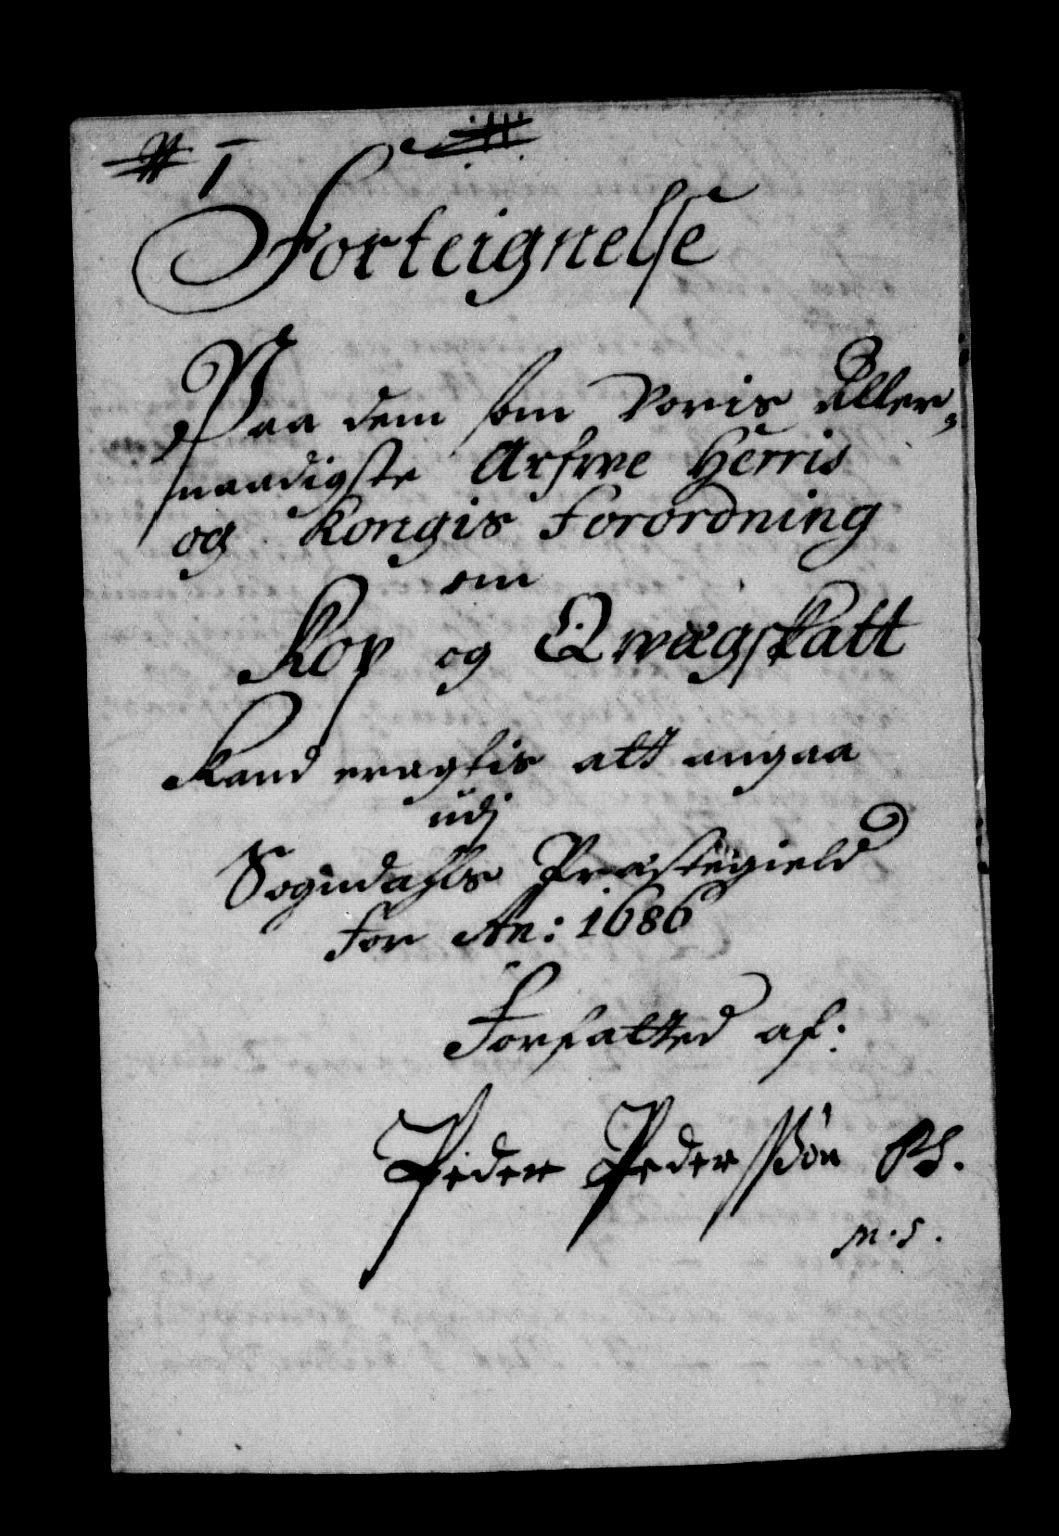 # 1
Forteignelse
Paa dem som Voris Aller,
naadigste Arfwe Herris
og Kongis Forordning
om
Kop og Qwægskatt
Kand eragtis att angaa
udj
Sogndahls Præstegield
for An: 1686
Forfatted af:
Peder Pederssøn
m.s.